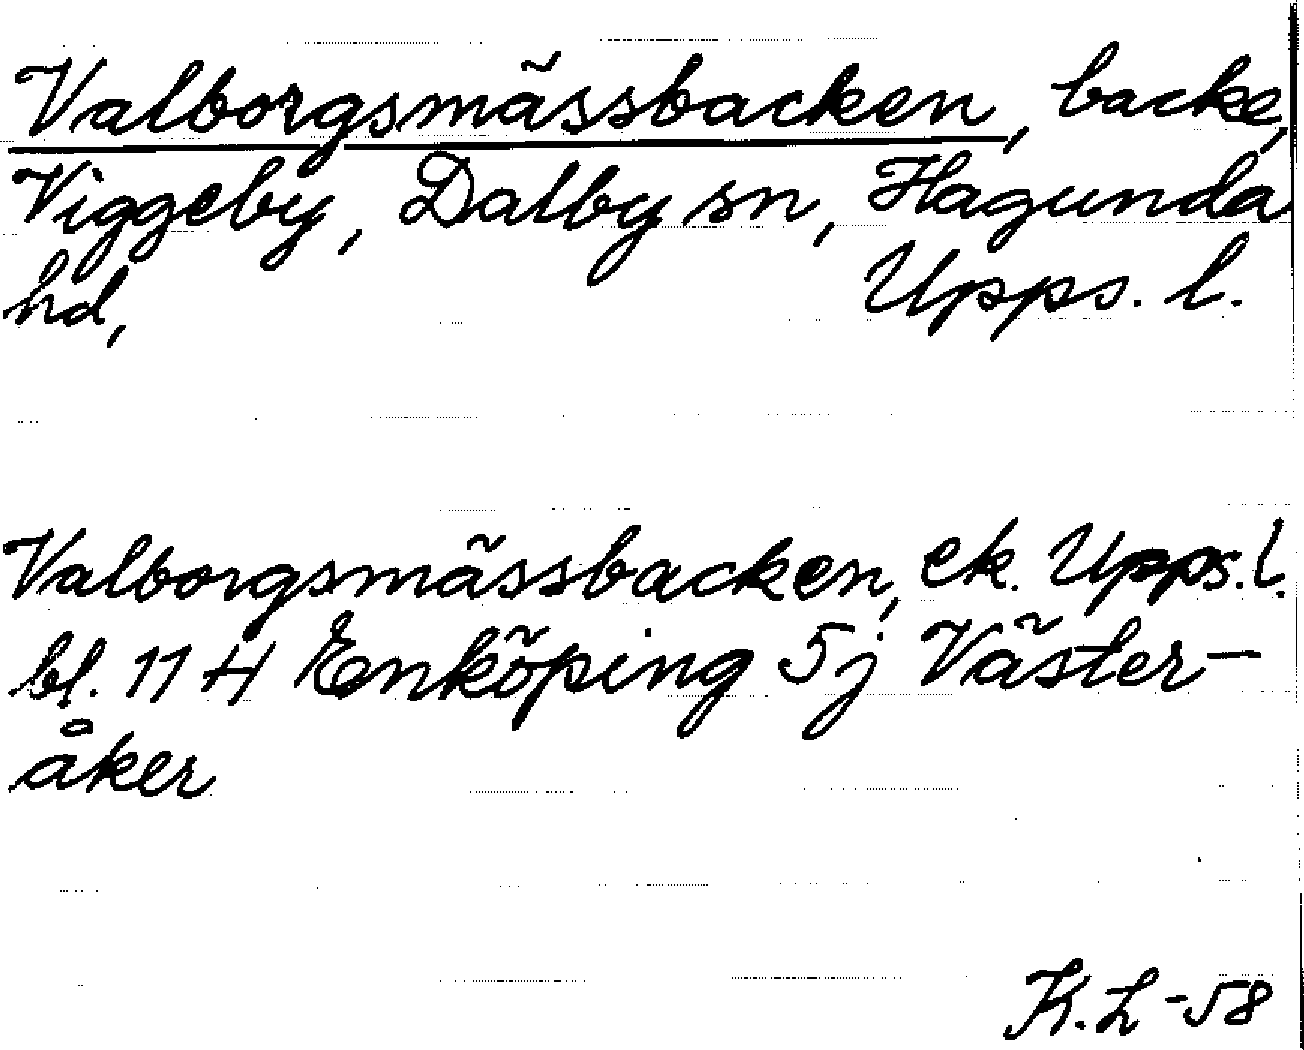 Valborgsmässbacken, backe,
Viggeby, Dalby sn, Hagunda
hd, Upps. l.
Valborgsmässbacken, ek. Upps. l.
bl. 11 H Enköping 5j Väster-
åker
K. L -58